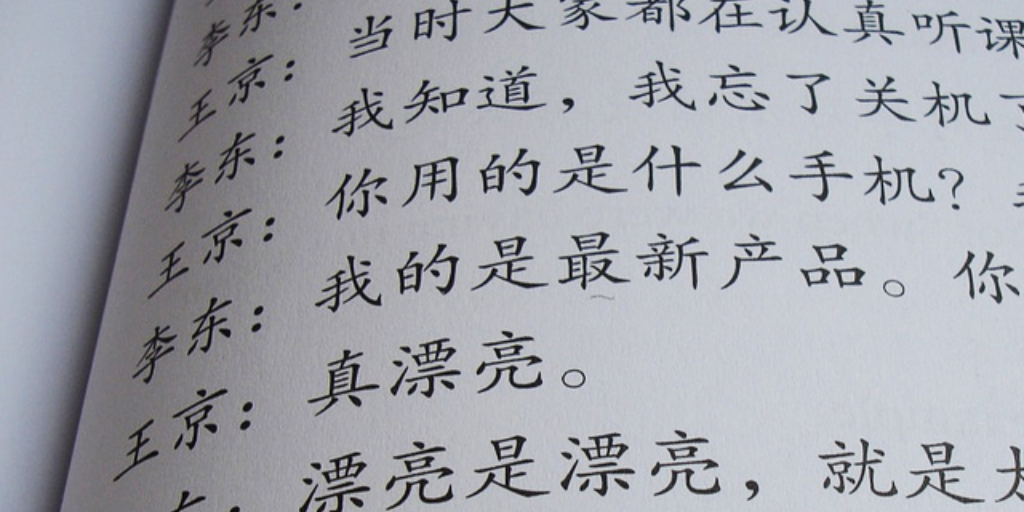 李东：
王京：当时大家都在认真听课
李东：我知道，我忘了关机
王京：你用的是什么手机？
李东：我的是最新产品。你
王京：真漂亮。
东：漂亮是漂亮，就是